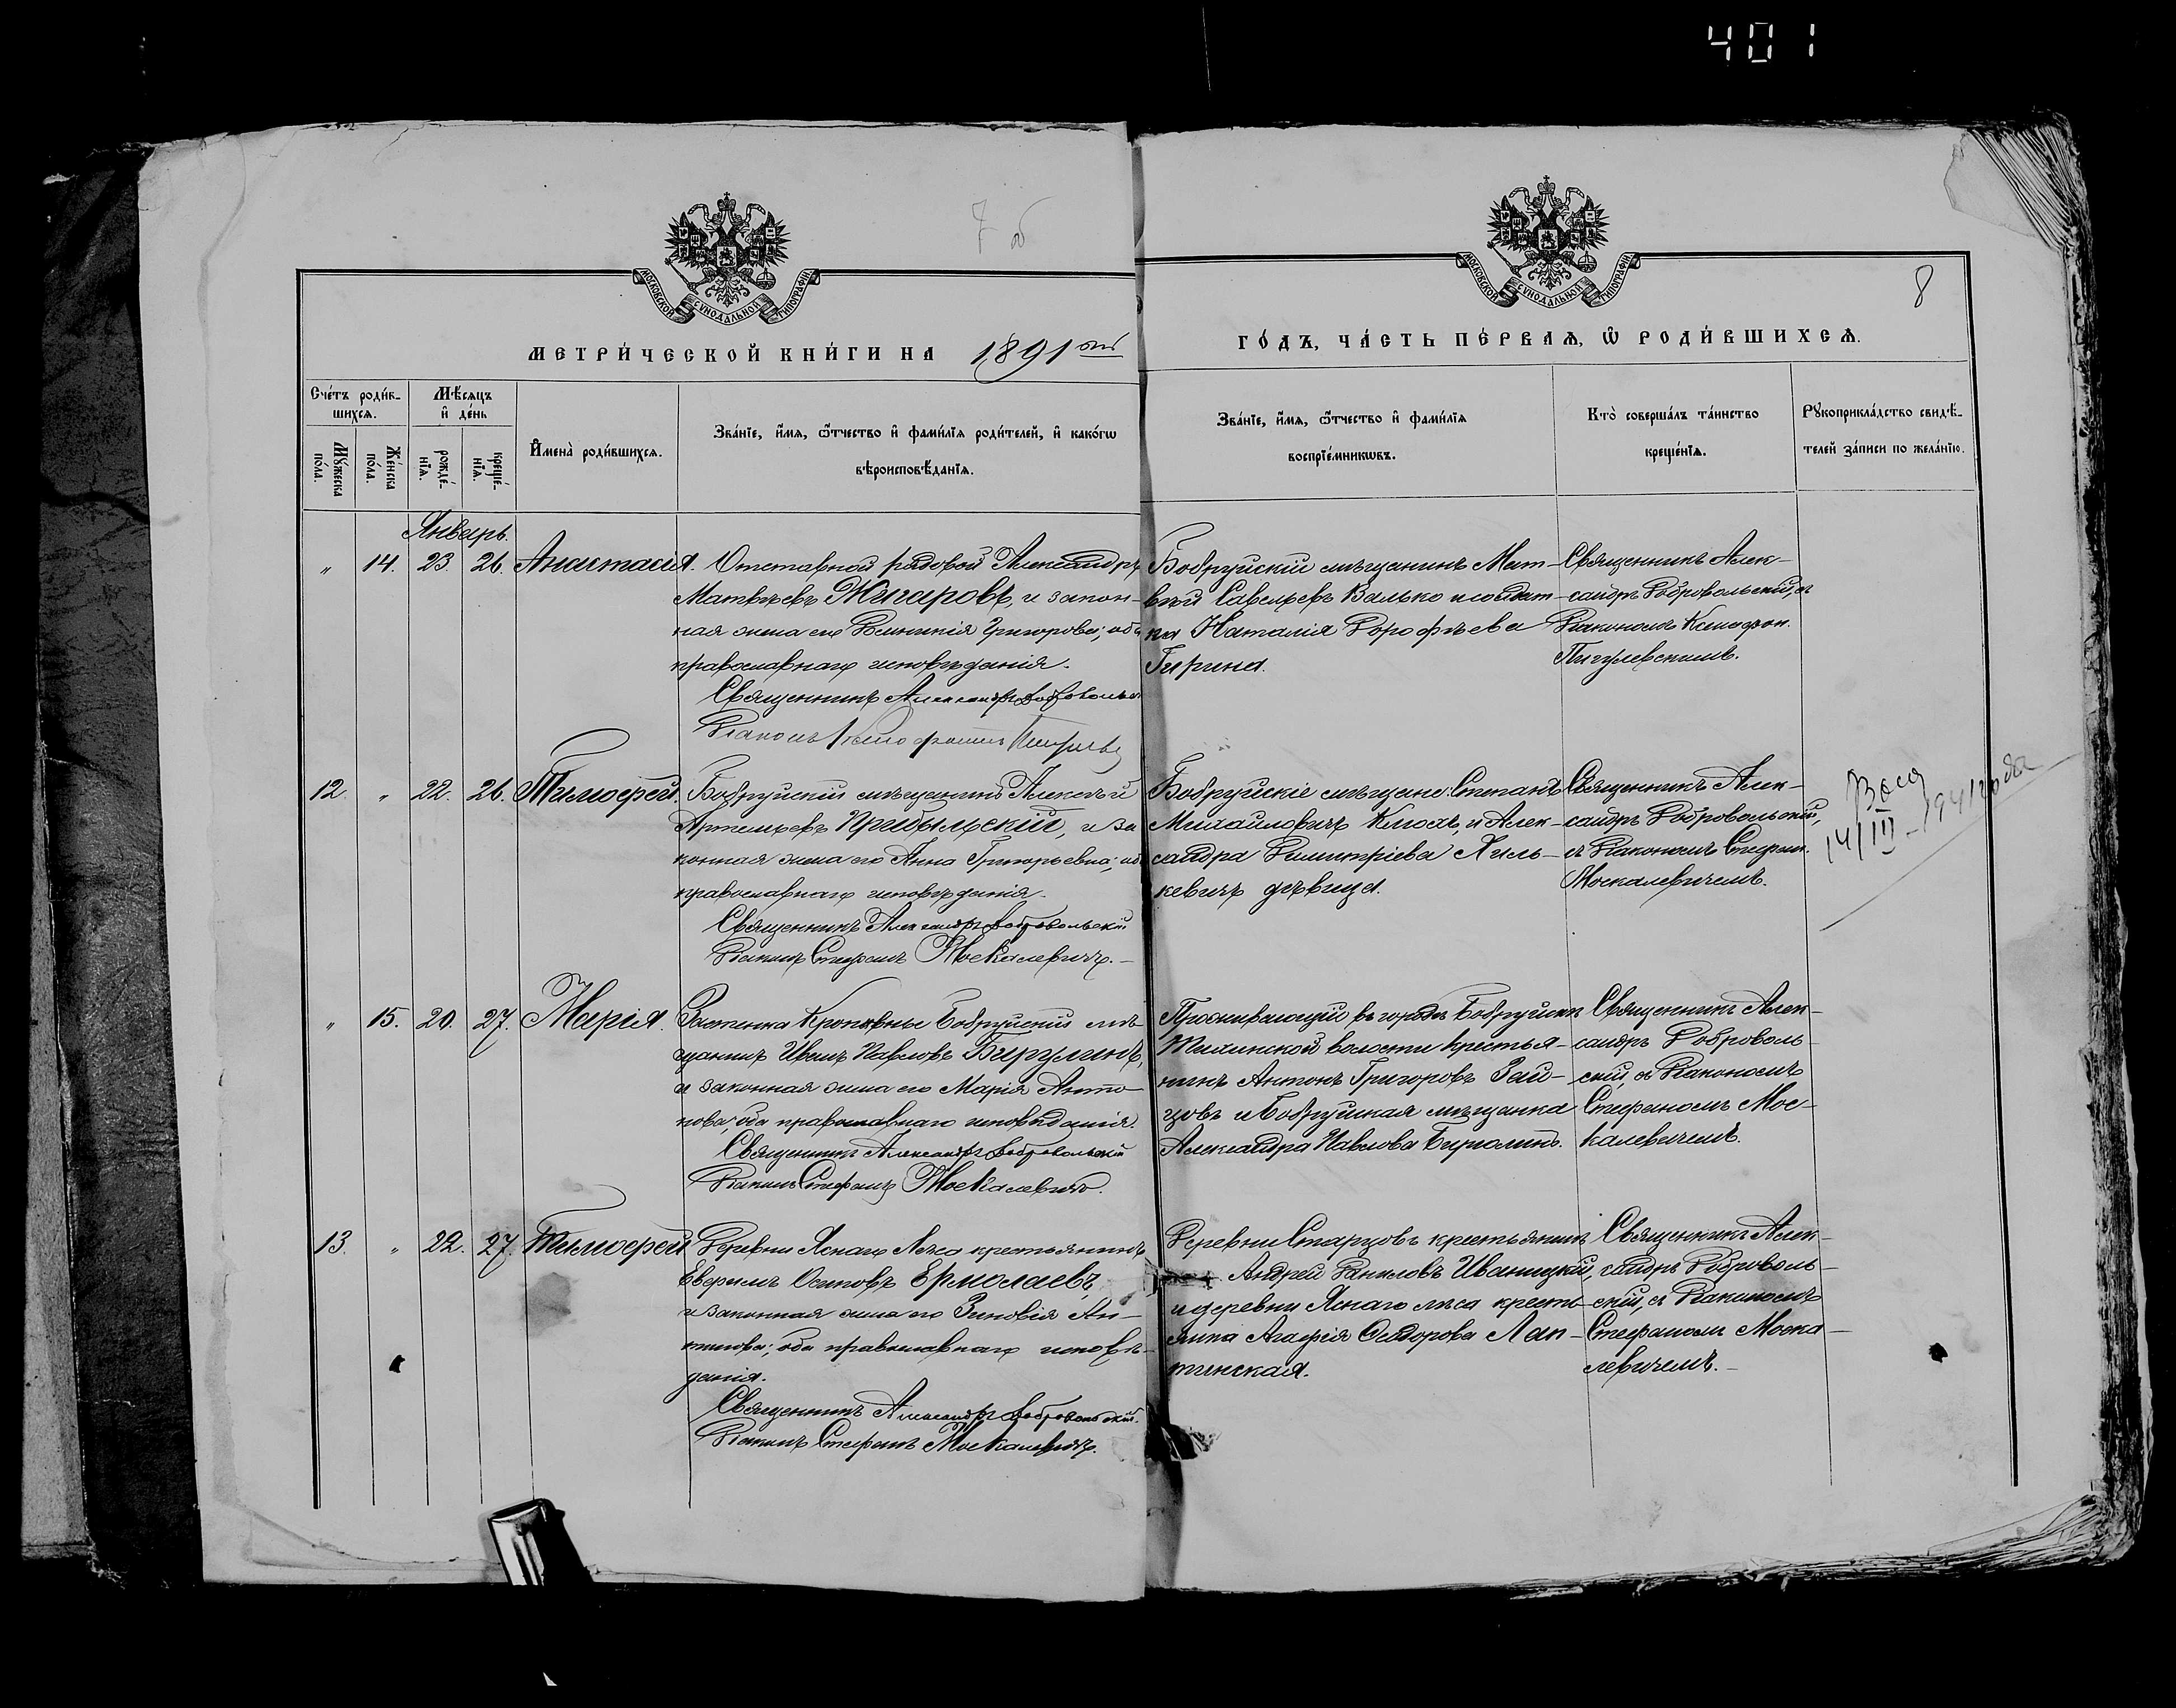 401
7 об
8
МОСКОВСКОЙ СУНОДАЛЬНОЙ ТИПОГРАФІИ
МОСКОВСКОЙ СУНОДАЛЬНОЙ ТИПОГРАФІИ
МЕТРИ́ЧЕСКОЙ КНИ́ГИ НА 1891 ый
ГО́ДЪ, ЧА́СТЬ ПЕ́РВАѦ, Ѡ҆ РОДИ́ВШИХСѦ.
Сче́тъ роди́в-
шихсѧ.
Мꙋ́жеска по́ла.
Же́нска по́ла.
Мѣ́сяцъ
и҆ де́нь
рожде́-
нїѧ.
креще́-
нїѧ.
И҆мена̀ роди́вшихсѧ.
Зва́нїе, и҆́мѧ, ѻ҆́тчество и҆ фами́лїѧ роди́телей, и҆ како́гѡ
вѣроисповѣ́данїѧ.
Зва́нїе, и҆́мѧ, ѻ҆́тчество и҆ фами́лїѧ
воспрїе́мникѡвъ.
Кто̀ соверша́лъ та́инство
креще́нїѧ.
Рꙋкоприкла́дство свидѣ́-
телей за́писи по жела́нїю.
Январь.
„ 14. 23. 26. Анастасія.
Отставной рядовой Александръ
Матвѣевъ Жигаровъ, и закон-
ная жена его Григорова; оба
православнаго исповѣданія.
Священникъ Александръ Добровольскій
Діаконъ
Бобруйскій мѣщанинъ Мат-
вѣй Савельевъ Валько и солдат-
ка Наталія Дорофѣева
Гирина.
Священникъ Алек-
сандръ Добровольскій, съ
Діакономъ Ксенофон.
Пигулевскимъ.
12. „ 22. 26. Тимофей.
Бобруйскій мѣщанинъ Алексѣй
Артемьевъ Прибыльскій, и за-
конная жена его Анна Григорьевна; оба
православнаго исповѣданія.
Священникъ Александръ Добровольскій
Діаконъ Стефанъ Москалевичъ.
Бобруйскіе мѣщане: Степанъ
Михайловичъ Клюхъ, и Алек-
сандра Димитріева Хиль-
кевичъ дѣвица.
Священникъ Алек-
сандръ Добровольскій,
съ Діакономъ Стефан.
Москалевичемъ.
14/III-1941 года
„ 15. 20. 27. Марія.
Застѣнка Бобруйскій мѣ-
щанинъ Иванъ Павловъ Бирулинъ,
и законная жена его Марія Анто-
нова; оба православнаго исповѣданія.
Священникъ Александръ Добровольскій
Діаконъ Стефанъ Москалевичъ.
Проживающій въ городѣ Бобруйскѣ
волости крестья-
нинъ Антонъ Григоровъ Зай-
цовъ и Бобруйская мѣщанка
Александра Павлова Бирюлинъ.
Священникъ Алек-
сандръ Доброволь-
скій, съ Діакономъ
Стефаномъ Мос-
калевичемъ.
13. „ 22. 27. Тимофей
Деревни Яснаго Лѣса крестьянинъ
Евфимъ Осиповъ Ермолаевъ,
и законная жена его Зиновія Ан-
типова; оба православнаго исповѣ-
данія.
Священникъ Александръ Добровольскій.
Діаконъ Стефанъ Москалевичъ.
Деревни Старцовъ крестьянинъ
Андрей Даниловъ Иваницкій,
и деревни Яснаго лѣса кресть-
янка Агафія Сидорова Лап-
тинская.
Священникъ Алек-
сандръ Доброволь-
скій, съ Діакономъ
Стефаномъ Моска-
левичемъ.